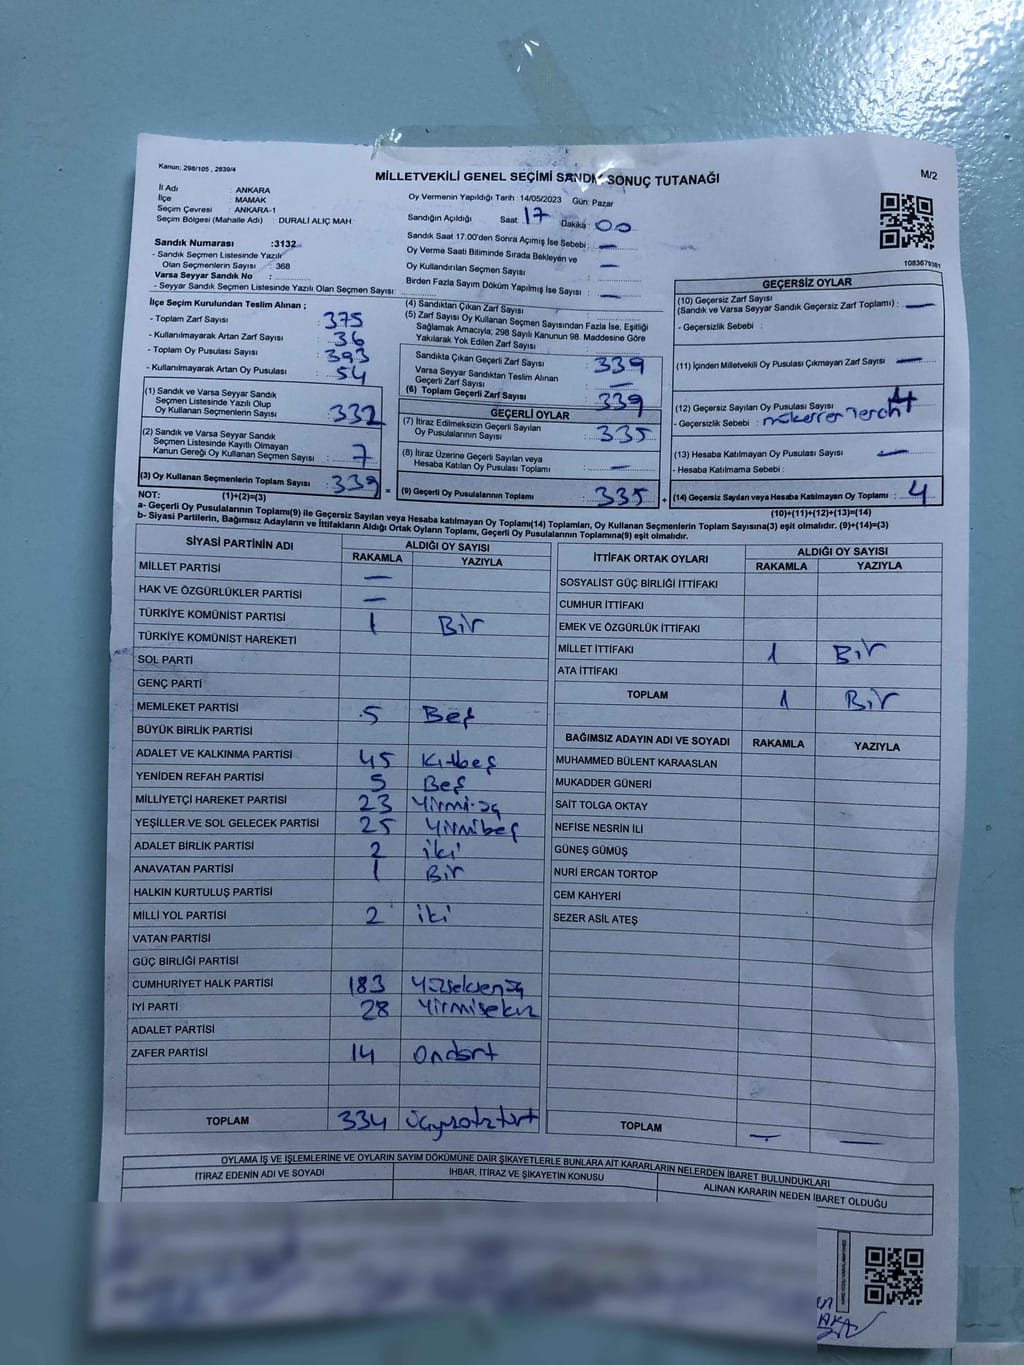 Kanun, 298/105 , 2839/4
MİLLETVEKİLİ GENEL SEÇİMİ SANDIK SONUÇ TUTANAĞI
M/2
İl Adı : ANKARA
İlçe : MAMAK
Seçim Çevresi : ANKARA-1
Seçim Bölgesi (Mahalle Adı) : DURALİ ALIÇ MAH
Sandık Numarası :3132
- Sandık Seçmen Listesinde Yazılı
Olan Seçmenlerin Sayısı : 368
Varsa Seyyar Sandık No :
- Seyyar Sandık Seçmen Listesinde Yazılı Olan Seçmen Sayısı:
Oy Vermenin Yapıldığı Tarih : 14/05/2023 Gün: Pazar
Sandığın Açıldığı Saat: 17 Dakika: 00
Sandık Saat 17.00'den Sonra Açılmış İse Sebebi : —
Oy Verme Saati Bitiminde Sırada Bekleyen ve
Oy Kullandırılan Seçmen Sayısı : —
Birden Fazla Sayım Döküm Yapılmış İse Sayısı : —
1083679381
İlçe Seçim Kurulundan Teslim Alınan ;
- Toplam Zarf Sayısı : 375
- Kullanılmayarak Artan Zarf Sayısı : 36
- Toplam Oy Pusulası Sayısı : 393
- Kullanılmayarak Artan Oy Pusulası : 54
(1) Sandık ve Varsa Seyyar Sandık
Seçmen Listesinde Yazılı Olup
Oy Kullanan Seçmenlerin Sayısı : 332
(2) Sandık ve Varsa Seyyar Sandık
Seçmen Listesinde Kayıtlı Olmayan
Kanun Gereği Oy Kullanan Seçmen Sayısı : 7
(3) Oy Kullanan Seçmenlerin Toplam Sayısı : 339 =
(4) Sandıktan Çıkan Zarf Sayısı :
(5) Zarf Sayısı Oy Kullanan Seçmen Sayısından Fazla İse, Eşitliği
Sağlamak Amacıyla; 298 Sayılı Kanunun 98. Maddesine Göre
Yakılarak Yok Edilen Zarf Sayısı :
Sandıkta Çıkan Geçerli Zarf Sayısı : 339
Varsa Seyyar Sandıktan Teslim Alınan
Geçerli Zarf Sayısı : —
(6) Toplam Geçerli Zarf Sayısı : 339
GEÇERLİ OYLAR
(7) İtiraz Edilmeksizin Geçerli Sayılan
Oy Pusulalarının Sayısı : 335
(8) İtiraz Üzerine Geçerli Sayılan veya
Hesaba Katılan Oy Pusulası Toplamı : —
(9) Geçerli Oy Pusulalarının Toplamı : 335 +
GEÇERSİZ OYLAR
(10) Geçersiz Zarf Sayısı
(Sandık ve Varsa Seyyar Sandık Geçersiz Zarf Toplamı) : —
- Geçersizlik Sebebi :
(11) İçinden Milletvekili Oy Pusulası Çıkmayan Zarf Sayısı : —
(12) Geçersiz Sayılan Oy Pusulası Sayısı : 4
- Geçersizlik Sebebi :
(13) Hesaba Katılmayan Oy Pusulası Sayısı : —
- Hesaba Katılmama Sebebi :
(14) Geçersiz Sayılan veya Hesaba Katılmayan Oy Toplamı : 4
NOT: (1)+(2)=(3)
(10)+(11)+(12)+(13)=(14)
a- Geçerli Oy Pusulasının Toplamı(9) ile Geçersiz Sayılan veya Hesaba katılmayan Oy Toplamı(14) Toplamları, Oy Kullanan Seçmenlerin Toplam Sayısına(3) eşit olmalıdır. (9)+(14)=(3)
b- Siyasi Partilerin, Bağımsız Adayların ve İttifakların Aldığı Ortak Oyların Toplamı, Geçerli Oy Pusulasının Toplamına(9) eşit olmalıdır.
SİYASİ PARTİNİN ADI ALDIĞI OY SAYISI
RAKAMLA YAZIYLA
MİLLET PARTİSİ —
HAK VE ÖZGÜRLÜKLER PARTİSİ —
TÜRKİYE KOMÜNİST PARTİSİ 1 Bir
TÜRKİYE KOMÜNİST HAREKETİ
SOL PARTİ
GENÇ PARTİ
MEMLEKET PARTİSİ 5 Beş
BÜYÜK BİRLİK PARTİSİ
ADALET VE KALKINMA PARTİSİ 45 Kırkbeş
YENİDEN REFAH PARTİSİ 5 Beş
MİLLİYETÇİ HAREKET PARTİSİ 23 Yirmi-üç
YEŞİLLER VE SOL GELECEK PARTİSİ 25 Yirmibeş
ADALET BİRLİK PARTİSİ 2 iki
ANAVATAN PARTİSİ 1 Bir
HALKIN KURTULUŞ PARTİSİ
MİLLİ YOL PARTİSİ 2 iki
VATAN PARTİSİ
GÜÇ BİRLİĞİ PARTİSİ
CUMHURİYET HALK PARTİSİ 183 Yüzseksenüç
İYİ PARTİ 28 Yirmisekiz
ADALET PARTİSİ
ZAFER PARTİSİ 14 Ondört
TOPLAM 334
İTTİFAK ORTAK OYLARI ALDIĞI OY SAYISI
RAKAMLA YAZIYLA
SOSYALİST GÜÇ BİRLİĞİ İTTİFAKI
CUMHUR İTTİFAKI
EMEK VE ÖZGÜRLÜK İTTİFAKI
MİLLET İTTİFAKI 1 Bir
ATA İTTİFAKI
TOPLAM 1 Bir
BAĞIMSIZ ADAYIN ADI VE SOYADI RAKAMLA YAZIYLA
MUHAMMED BÜLENT KARAASLAN
MUKADDER GÜNERİ
SAİT TOLGA OKTAY
NEFİSE NESRİN İLİ
GÜNEŞ GÜMÜŞ
NURİ ERCAN TORTOP
CEM KAHYERİ
SEZER ASİL ATEŞ
TOPLAM — —
OYLAMA İŞ VE İŞLEMLERİNE VE OYLARIN SAYIM DÖKÜMÜNE DAİR ŞİKAYETLERLE BUNLARA AİT KARARLARIN NELERDEN İBARET BULUNDUKLARI
İTİRAZ EDENİN ADI VE SOYADI İHBAR, İTİRAZ VE ŞİKAYETİN KONUSU ALINAN KARARIN NEDEN İBARET OLDUĞU